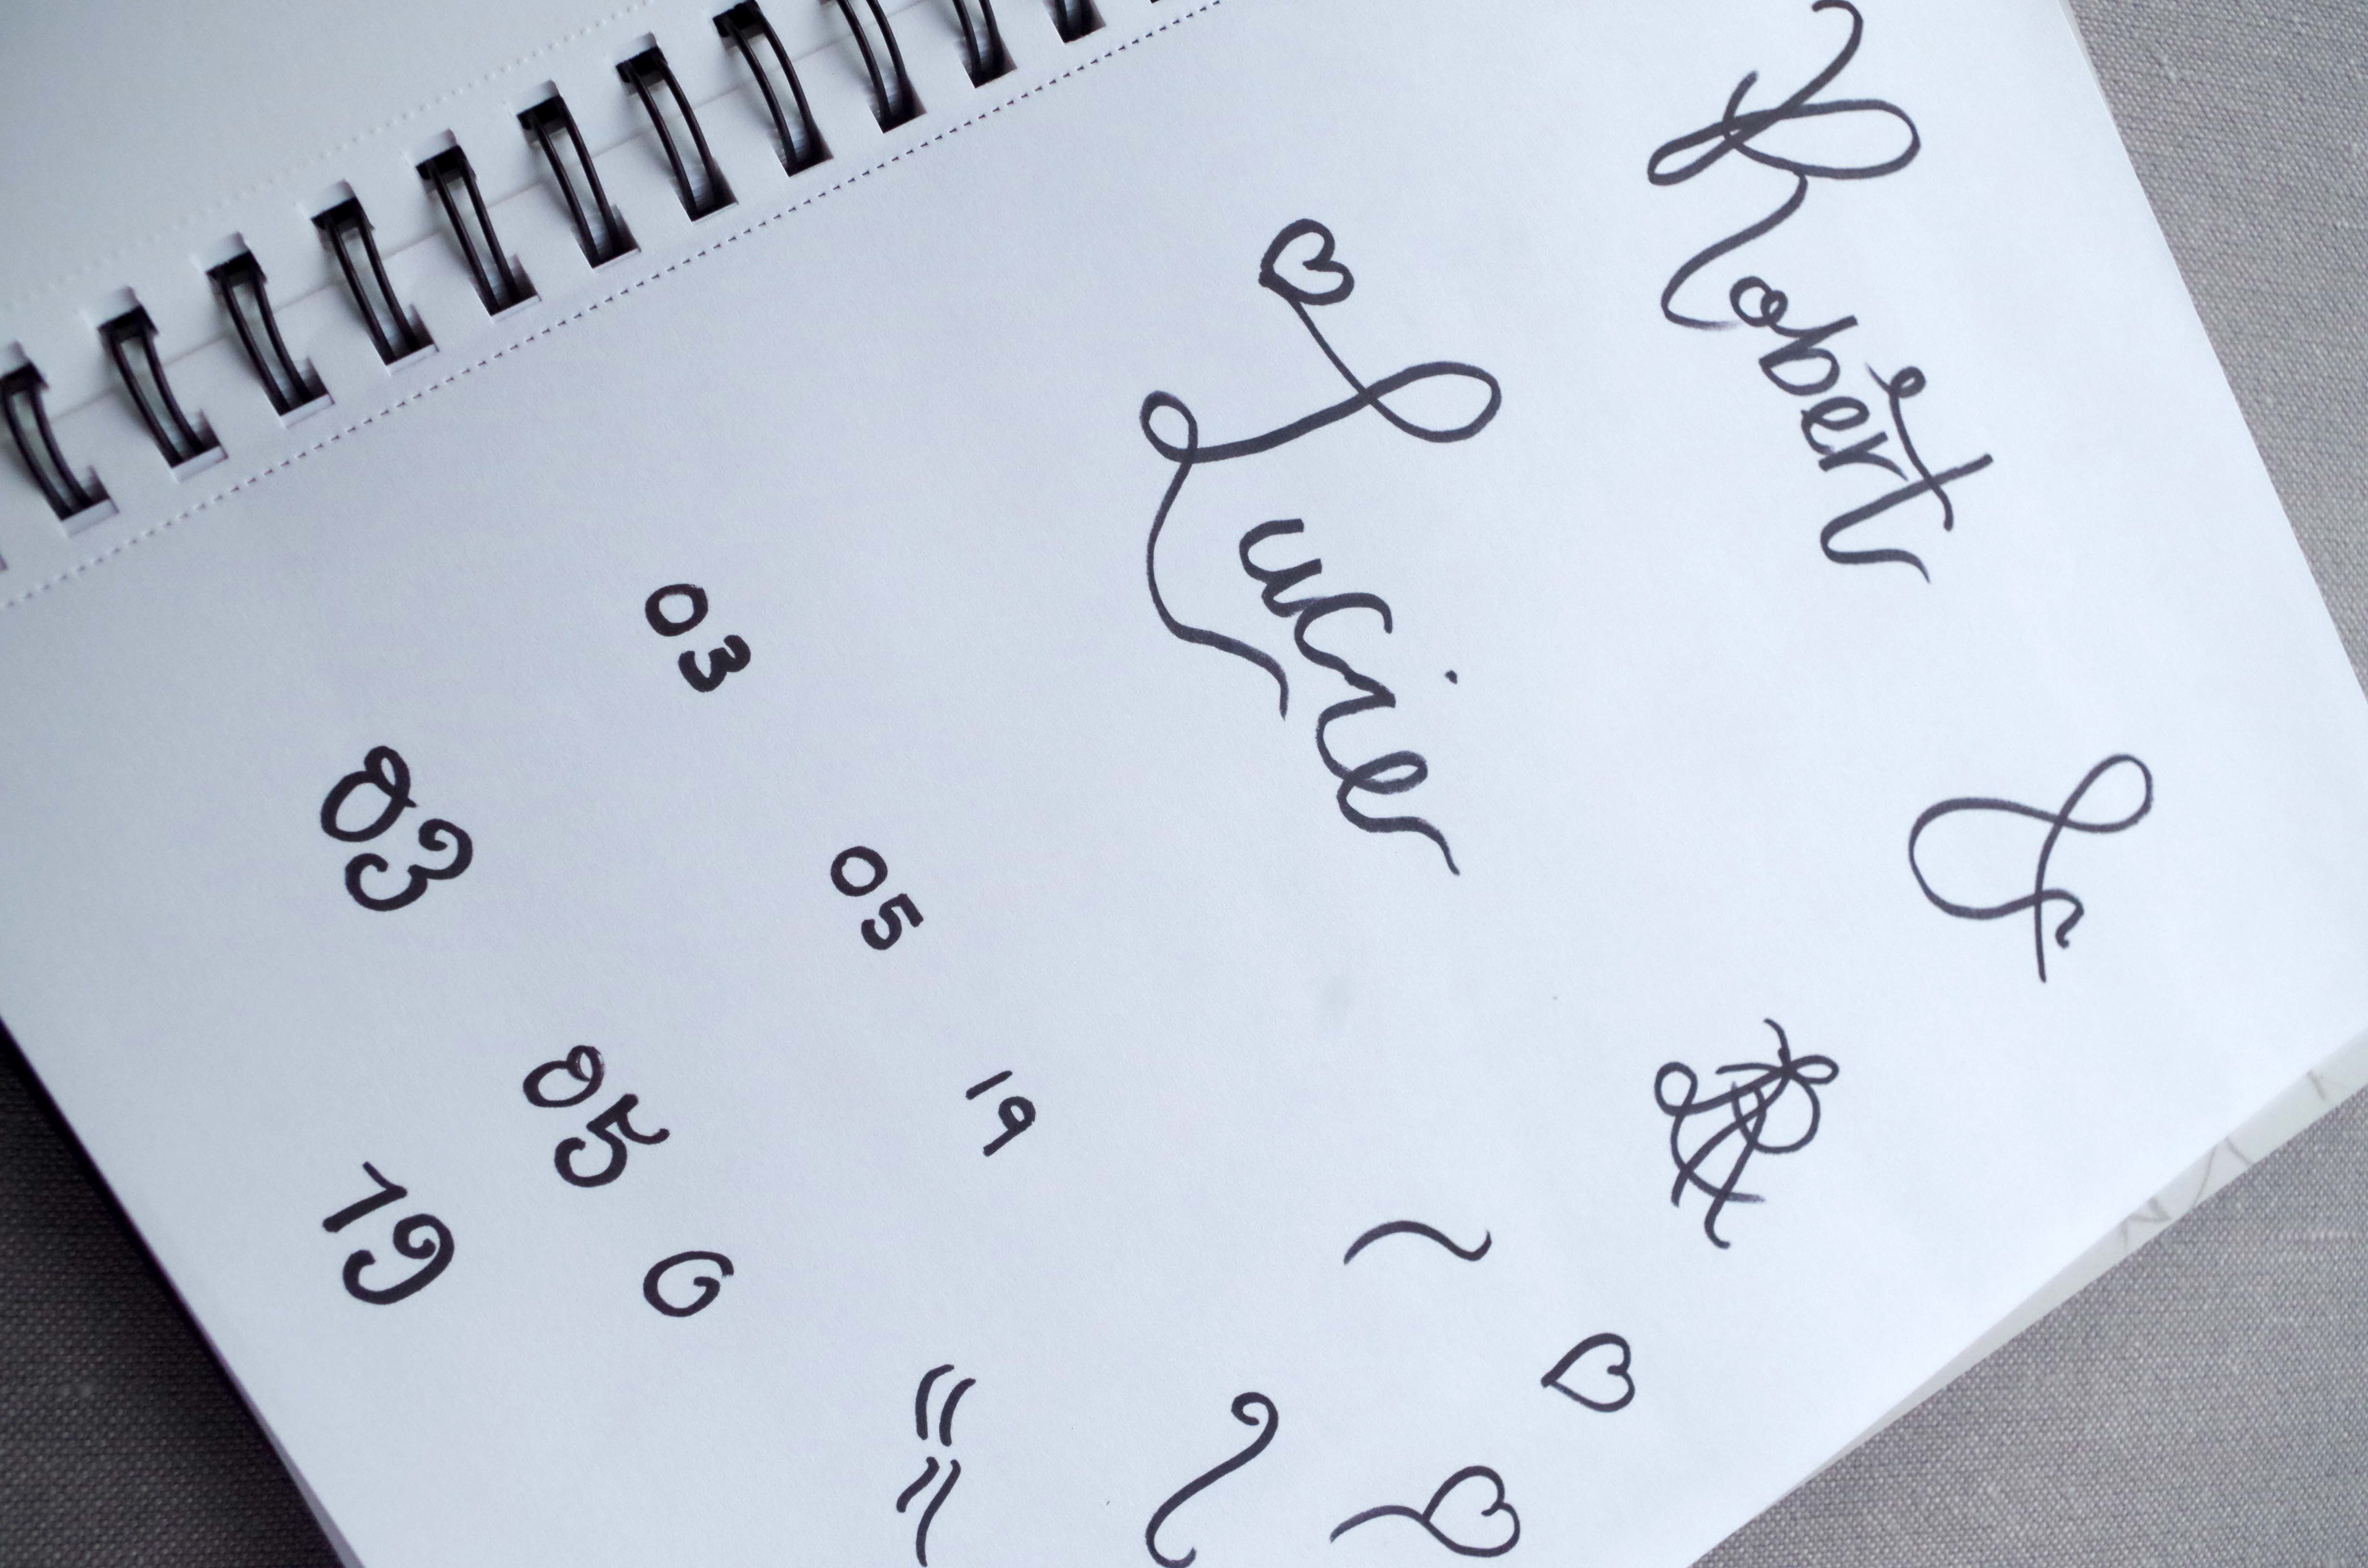 Robert
&
Lucie
03
05
19
03
05
19
0